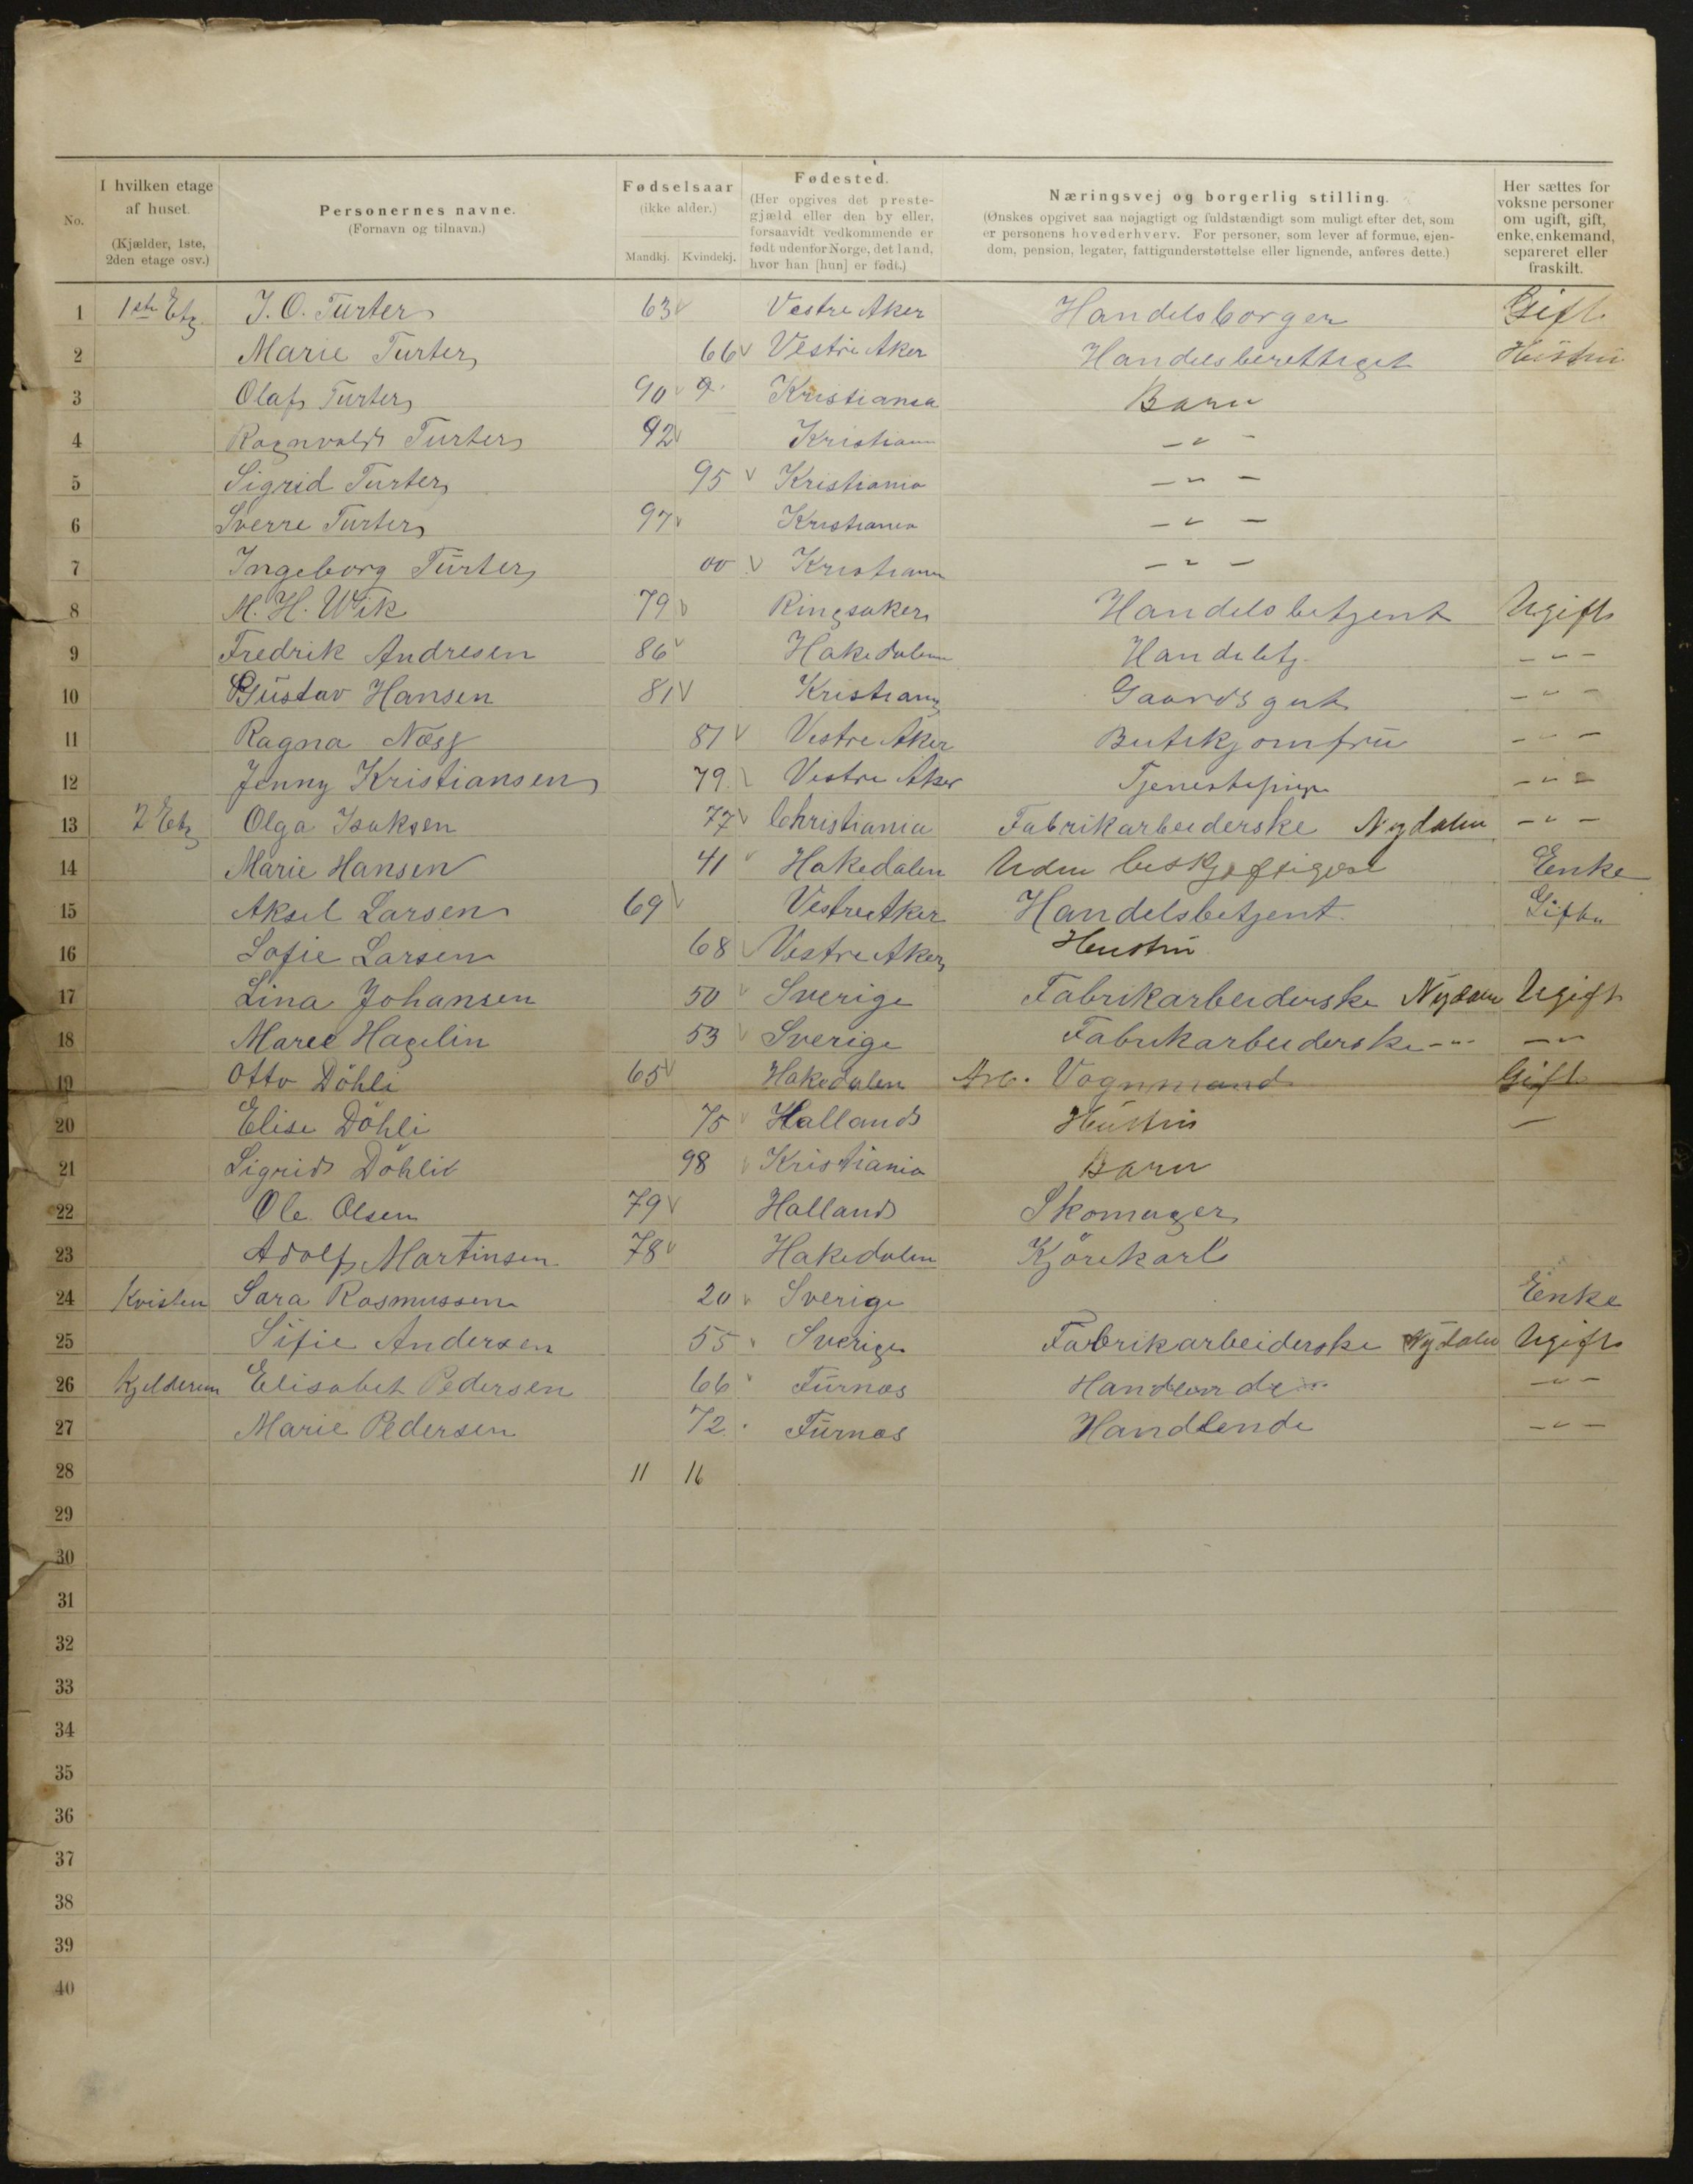 No.
I hvilken etage af huset. (Kjælder, 1ste, 2den etage osv.)
Personernes navne. (Fornavn og tilnavn.)
Fødselsaar (ikke alder.) Mandkj. Kvindekj.
Fødested. (Her opgives det prestegjæld eller den by eller, forsaavidt vedkommende er født udenfor Norge, det land, hvor han [hun] er født.)
Næringsvej og borgerlig stilling. (Ønskes opgivet saa nøjagtigt og fuldstændigt som muligt efter det, som er personens hovederhverv. For personer, som lever af formue, ejendom, pension, legater, fattigunderstøttelse eller lignende, anføres dette.)
Her sættes for voksne personer om ugift, gift, enke, enkemand, separeret eller fraskilt.
1 1ste Etg. J. O. Turter 63 Vestre Aker Handelsborger Gift
2 Marie Turter 66 Vestre Aker Handelsberettiget Hustru
3 Olaf Turter 90 Kristiania Barn
4 Ragnvald Turter 92 Kristiania - " -
5 Sigrid Turter 95 Kristiania - " -
6 Sverre Turter 97 Kristiania - " -
7 Ingeborg Turter 00 Kristiania - " -
8 M. H. Wik 79 Ringsaker Handelsbetjent Ugift
9 Fredrik Andresen 86 Hakedalen Handelsbtj. - " -
10 Gustav Hansen 81 Kristiania Gaardsgut - " -
11 Ragna Næss 81 Vestre Aker Butikjomfru - " -
12 Jenny Kristiansen 79 Vestre Aker Tjenestepige - " -
13 2 Etg Olga Isaksen 77 Christiania Fabrikarbeiderske Nydalen - " -
14 Marie Hansen 41 Hakedalen Uden beskjeftigelse Enke
15 Aksel Larsen 69 Vestre Aker Handelsbetjent Gift
16 Sofie Larsen 68 Vestre Aker Hustru
17 Lina Johansen 50 Sverige Fabrikarbeiderske Nydalen Ugift
18 Maree Hagelin 53 Sverige Fabrikarbeiderske - " - - " -
19 Otto Döhli 65 Hakedalen Arb. Vognmand Gift
20 Elise Döhli 75 Halland Hustru -
21 Sigrid Döhli 98 Kristiania Barn
22 Ole Olsen 79 Halland Skomager
23 Adolf Martinsen 78 Hakedalen Kjörekarl
24 Kvisten Sara Rasmussen 20 Sverige Enke
25 Sifie Andersen 55 Sverige Fabrikarbeiderske Nydalen Ugift
26 Kjelderen Elisabet Pedersen 66 Furnæs - " -
27 Marie Pedersen 72 Furnæs Handlende - " -
28 11 16
29
30
31
32
33
34
35
36
37
38
39
40